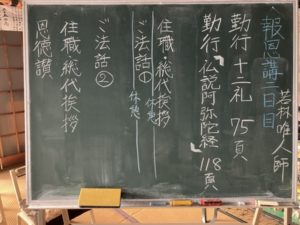 報恩講二日目
若林唯人師
勤行 十二礼 75頁
勤行 仏説阿弥陀経 118頁
住職・総代挨拶
休憩
ご法話①
休憩
ご法話②
住職・総代挨拶
恩徳讃